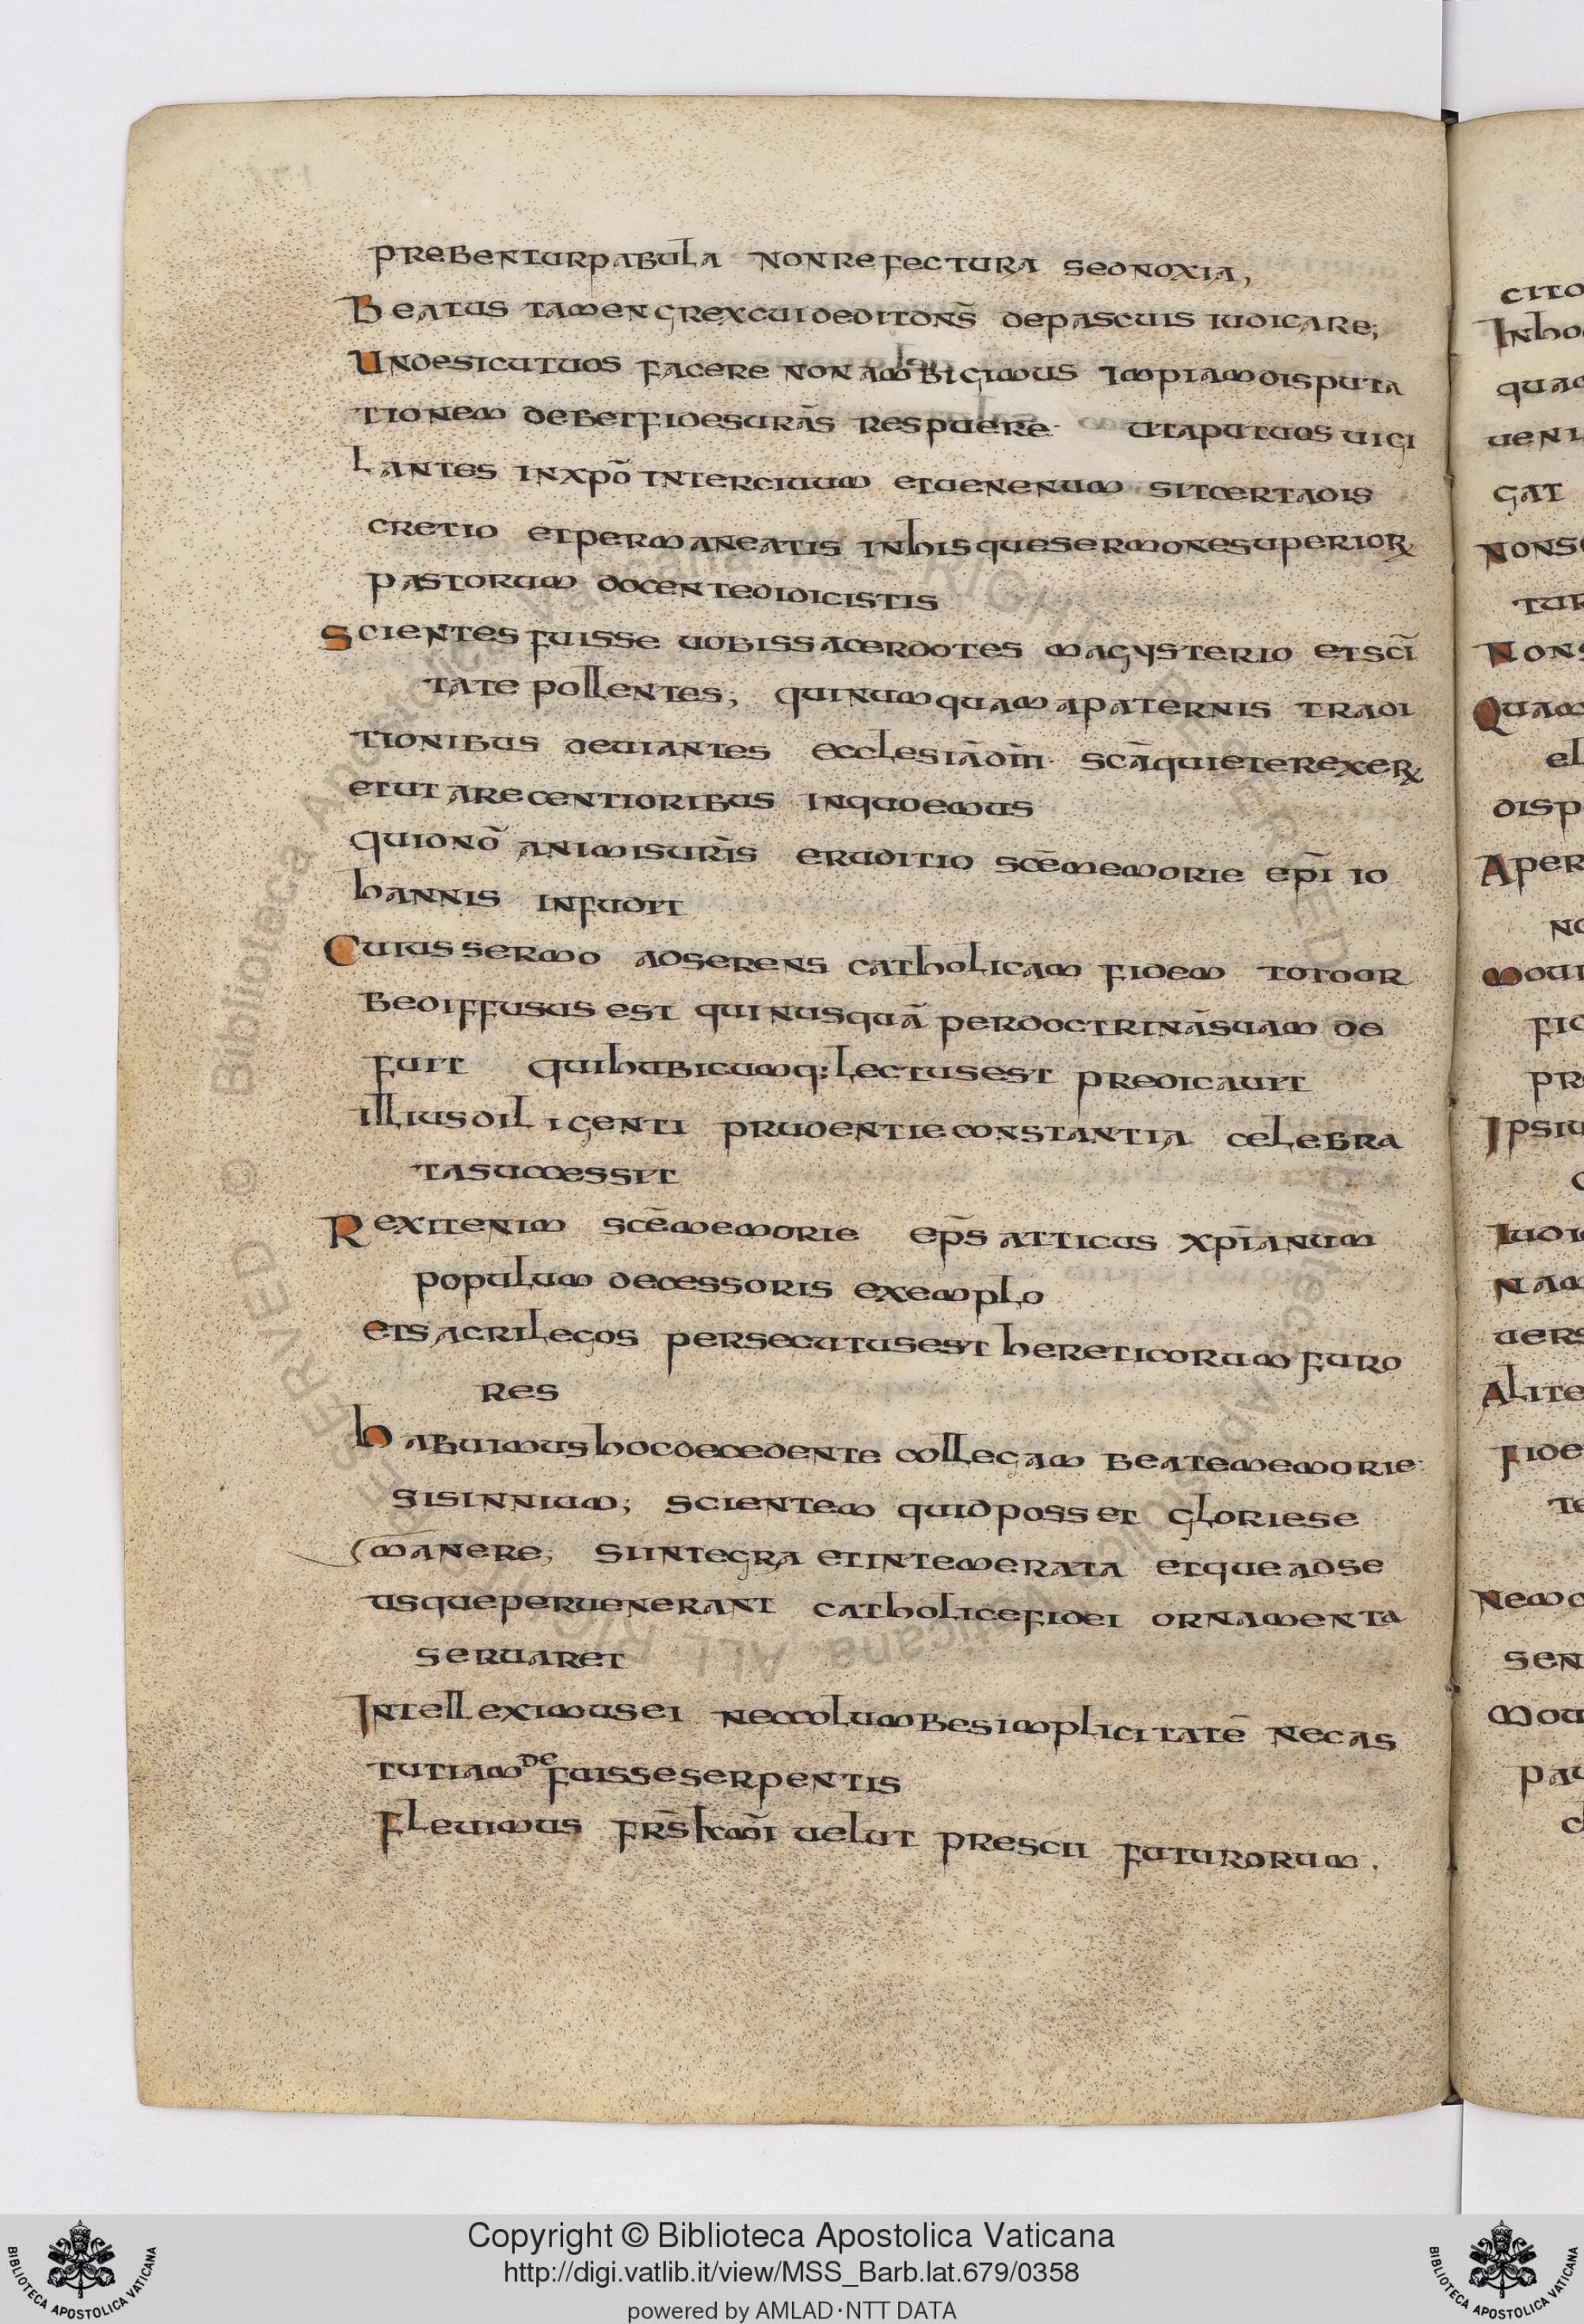 prebentur pabula non refectura sed noxia,
Beatus tamen grex cui dedit dns̄ de pascuis iudicare;
Unde sicut uos facere non ambigimus Impiam disputa
tionem debet fides urās respuere· ut aput uos uigi
lantes in xpō inter ciuum et uenenum sit certa dis
cretio et permaneatis in his que sermone superiorꝝ
pastorum docente didicistis
Scientes fuisse uobis sacerdotes magysterio et scī
tate pollentes; qui numquam a paternis tradi
tionibus deuiantes ecclesiā dīn· scā quiete rexerꝝ
et ut a recentioribus inquoemus
quid nō animis urīs eruditio scē memorie epī io
hannis infudit
Cuius sermo adserens catholicam fidem toto or
be diffusus est qui nusquā per doctrinā suam de
fuit qui hubicumq: lectus est predicauit
illius diligenti prudentie constantia celebra
ta successit
Rexit enim scē memorie ep̄s atticus xpīanum̄
populum decessoris exemplo
et sacrilegos persecutus est hereticorum furo
res
habuimus hoc decedente collegam beate memorie·
sisinnium; scientem quid posset glorie se
manere; si integra et intemerata et que ad se
usque peruenerant catholice fidei ornamenta
seruaret
Intelleximus ei nec columbe simplicitatē nec as
tutiam de fuisse serpentis
Fleuimus frs̄ kmī uelut prescii futurorum.
cito
Inho
quac
ueni
gat
nonse
tur
Nons
Quam
el
disp
Aper
no
moui
fid
pr
Ipsiu
c
Iudi
nam
uers
Alite
fide
te
Nemo
sen
Mou
pau
cl
© Biblioteca Apostolica Vaticana ALL RIGHTS RESERVED
Copyright © Biblioteca Apostolica Vaticana
http://digi.vatlib.it/view/MSS_Barb.lat.679/0358
powered by AMLAD·NTT DATA
BIBLIOTECA APOSTOLICA VATICANA
BIBLIOTECA APOSTOLICA VATICANA